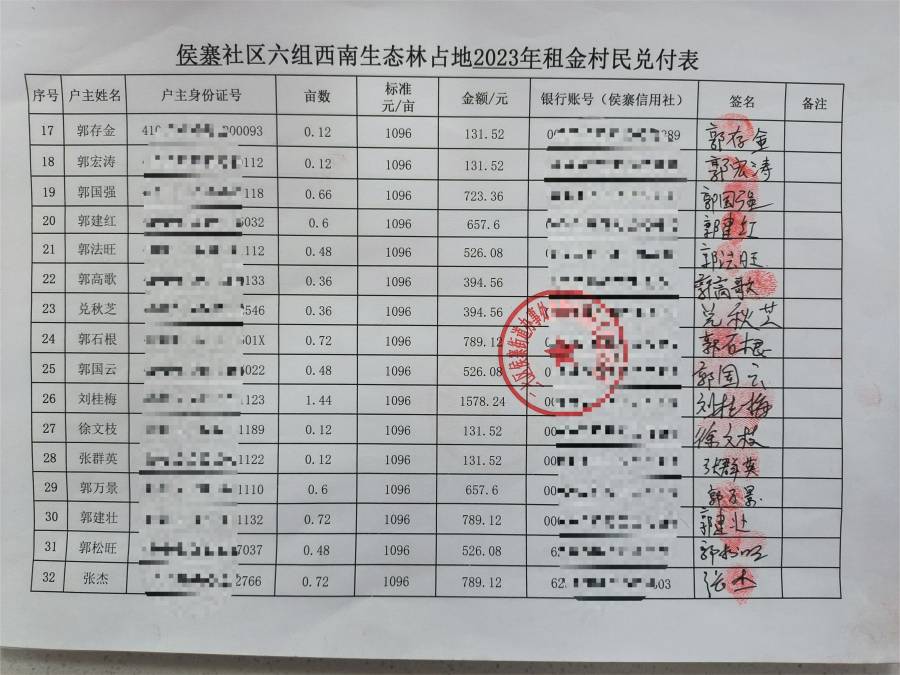 侯寨社区六组西南生态林占地2023年租金村民兑付表
序号 户主姓名 户主身份证号 亩数 标准 元/亩 金额/元 银行账号（侯寨信用社） 签名 备注
17 郭存金 410 200093 0.12 1096 131.52 00 389 郭存金
18 郭宏涛 112 0.12 1096 131.52 郭宏涛
19 郭国强 118 0.66 1096 723.36 郭国强
20 郭建红 032 0.6 1096 657.6 郭建红
21 郭法旺 112 0.48 1096 526.08 00 郭法旺
22 郭高歌 133 0.36 1096 394.56 郭高歌
23 兑秋芝 546 0.36 1096 394.56 兑秋芝
24 郭石根 01X 0.72 1096 789.12 0 郭石根
25 郭国云 022 0.48 1096 526.08 0 郭国云
26 刘桂梅 1123 1.44 1096 1578.24 00 刘桂梅
27 徐文枝 1189 0.12 1096 131.52 00 徐文枝
28 张群英 1122 0.12 1096 131.52 00 张群英
29 郭万景 1110 0.6 1096 657.6 00 郭万景
30 郭建壮 1132 0.72 1096 789.12 00 郭建壮
31 郭松旺 7037 0.48 1096 526.08 6 郭松旺
32 张杰 2766 0.72 1096 789.12 62 603 张杰
区侯寨街道办事处